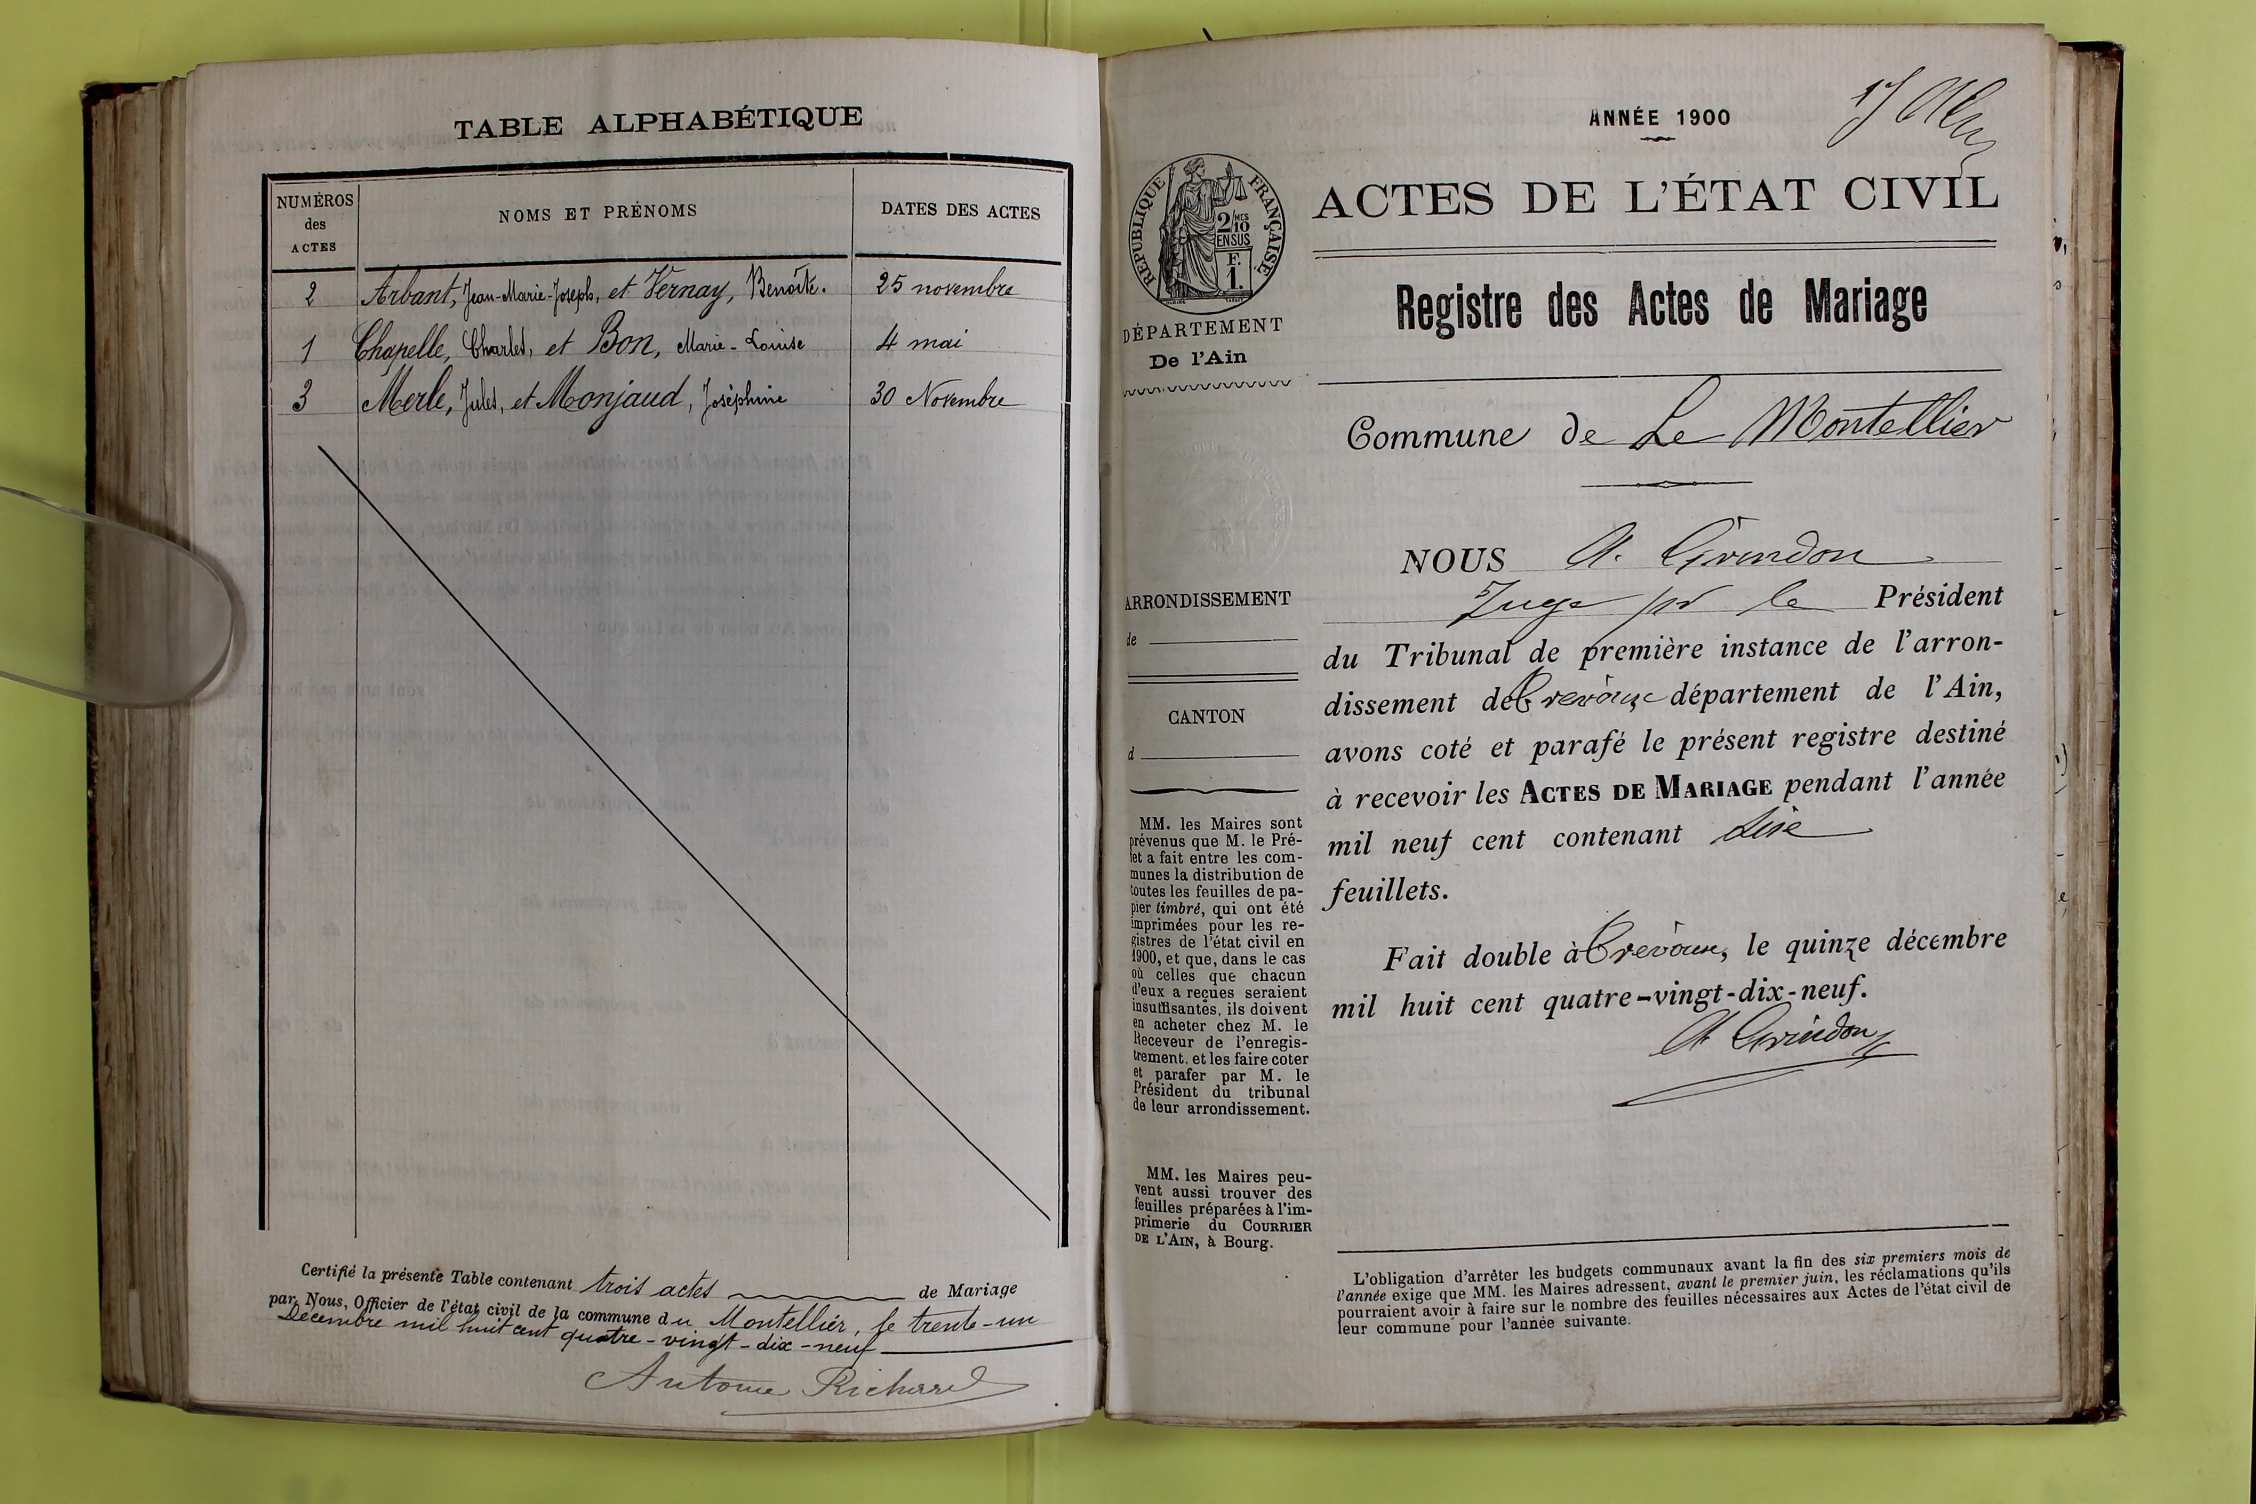 TABLE ALPHABÉTIQUE
NUMÉROS des ACTES
NOMS ET PRÉNOMS
DATES DES ACTES
2 Arbant, Jean-Marie-Joseph, et Vernay, Benoîte. 25 novembre
1 Chapelle, Charles, et Bon, Marie-Louise 4 mai
3 Merle, Jules, et Monjaud, Joséphine 30 Novembre
Certifié la présente Table contenant trois actes de Mariage
par Nous, Officier de l'état civil de la commune du Montellier, le trente-un
Décembre mil huit cent quatre-vingt-dix-neuf
Antoine Richard
ANNÉE 1900
ACTES DE L'ÉTAT CIVIL
Registre des Actes de Mariage
Commune de Le Montellier
NOUS A. Grindon
Juge pr le Président
du Tribunal de première instance de l'arron-
dissement de Trévoux département de l'Ain,
avons coté et parafé le présent registre destiné
à recevoir les ACTES DE MARIAGE pendant l'année
mil neuf cent contenant
feuillets.
Fait double à Trévoux, le quinze décembre
mil huit cent quatre-vingt-dix-neuf.
A Grindon
L'obligation d'arrêter les budgets communaux avant la fin des six premiers mois de
l'année exige que MM. les Maires adressent, avant le premier juin, les réclamations qu'ils
pourraient avoir à faire sur le nombre des feuilles nécessaires aux Actes de l'état civil de
leur commune pour l'année suivante.
RÉPUBLIQUE FRANÇAISE
2/MES
10
EN SUS
F.
1.
DÉPARTEMENT
De l'Ain
ARRONDISSEMENT
de
CANTON
d
MM. les Maires sont
prévenus que M. le Pré-
fet a fait entre les com-
munes la distribution de
toutes les feuilles de pa-
pier timbré, qui ont été
imprimées pour les re-
gistres de l'état civil en
1900, et que, dans le cas
où celles que chacun
d'eux a reçues seraient
insuffisantes, ils doivent
en acheter chez M. le
Receveur de l'enregis-
trement. et les faire coter
et parafer par M. le
Président du tribunal
de leur arrondissement.
MM. les Maires peu-
vent aussi trouver des
feuilles préparées à l'im-
primerie du COURRIER
DE L'AIN, à Bourg.